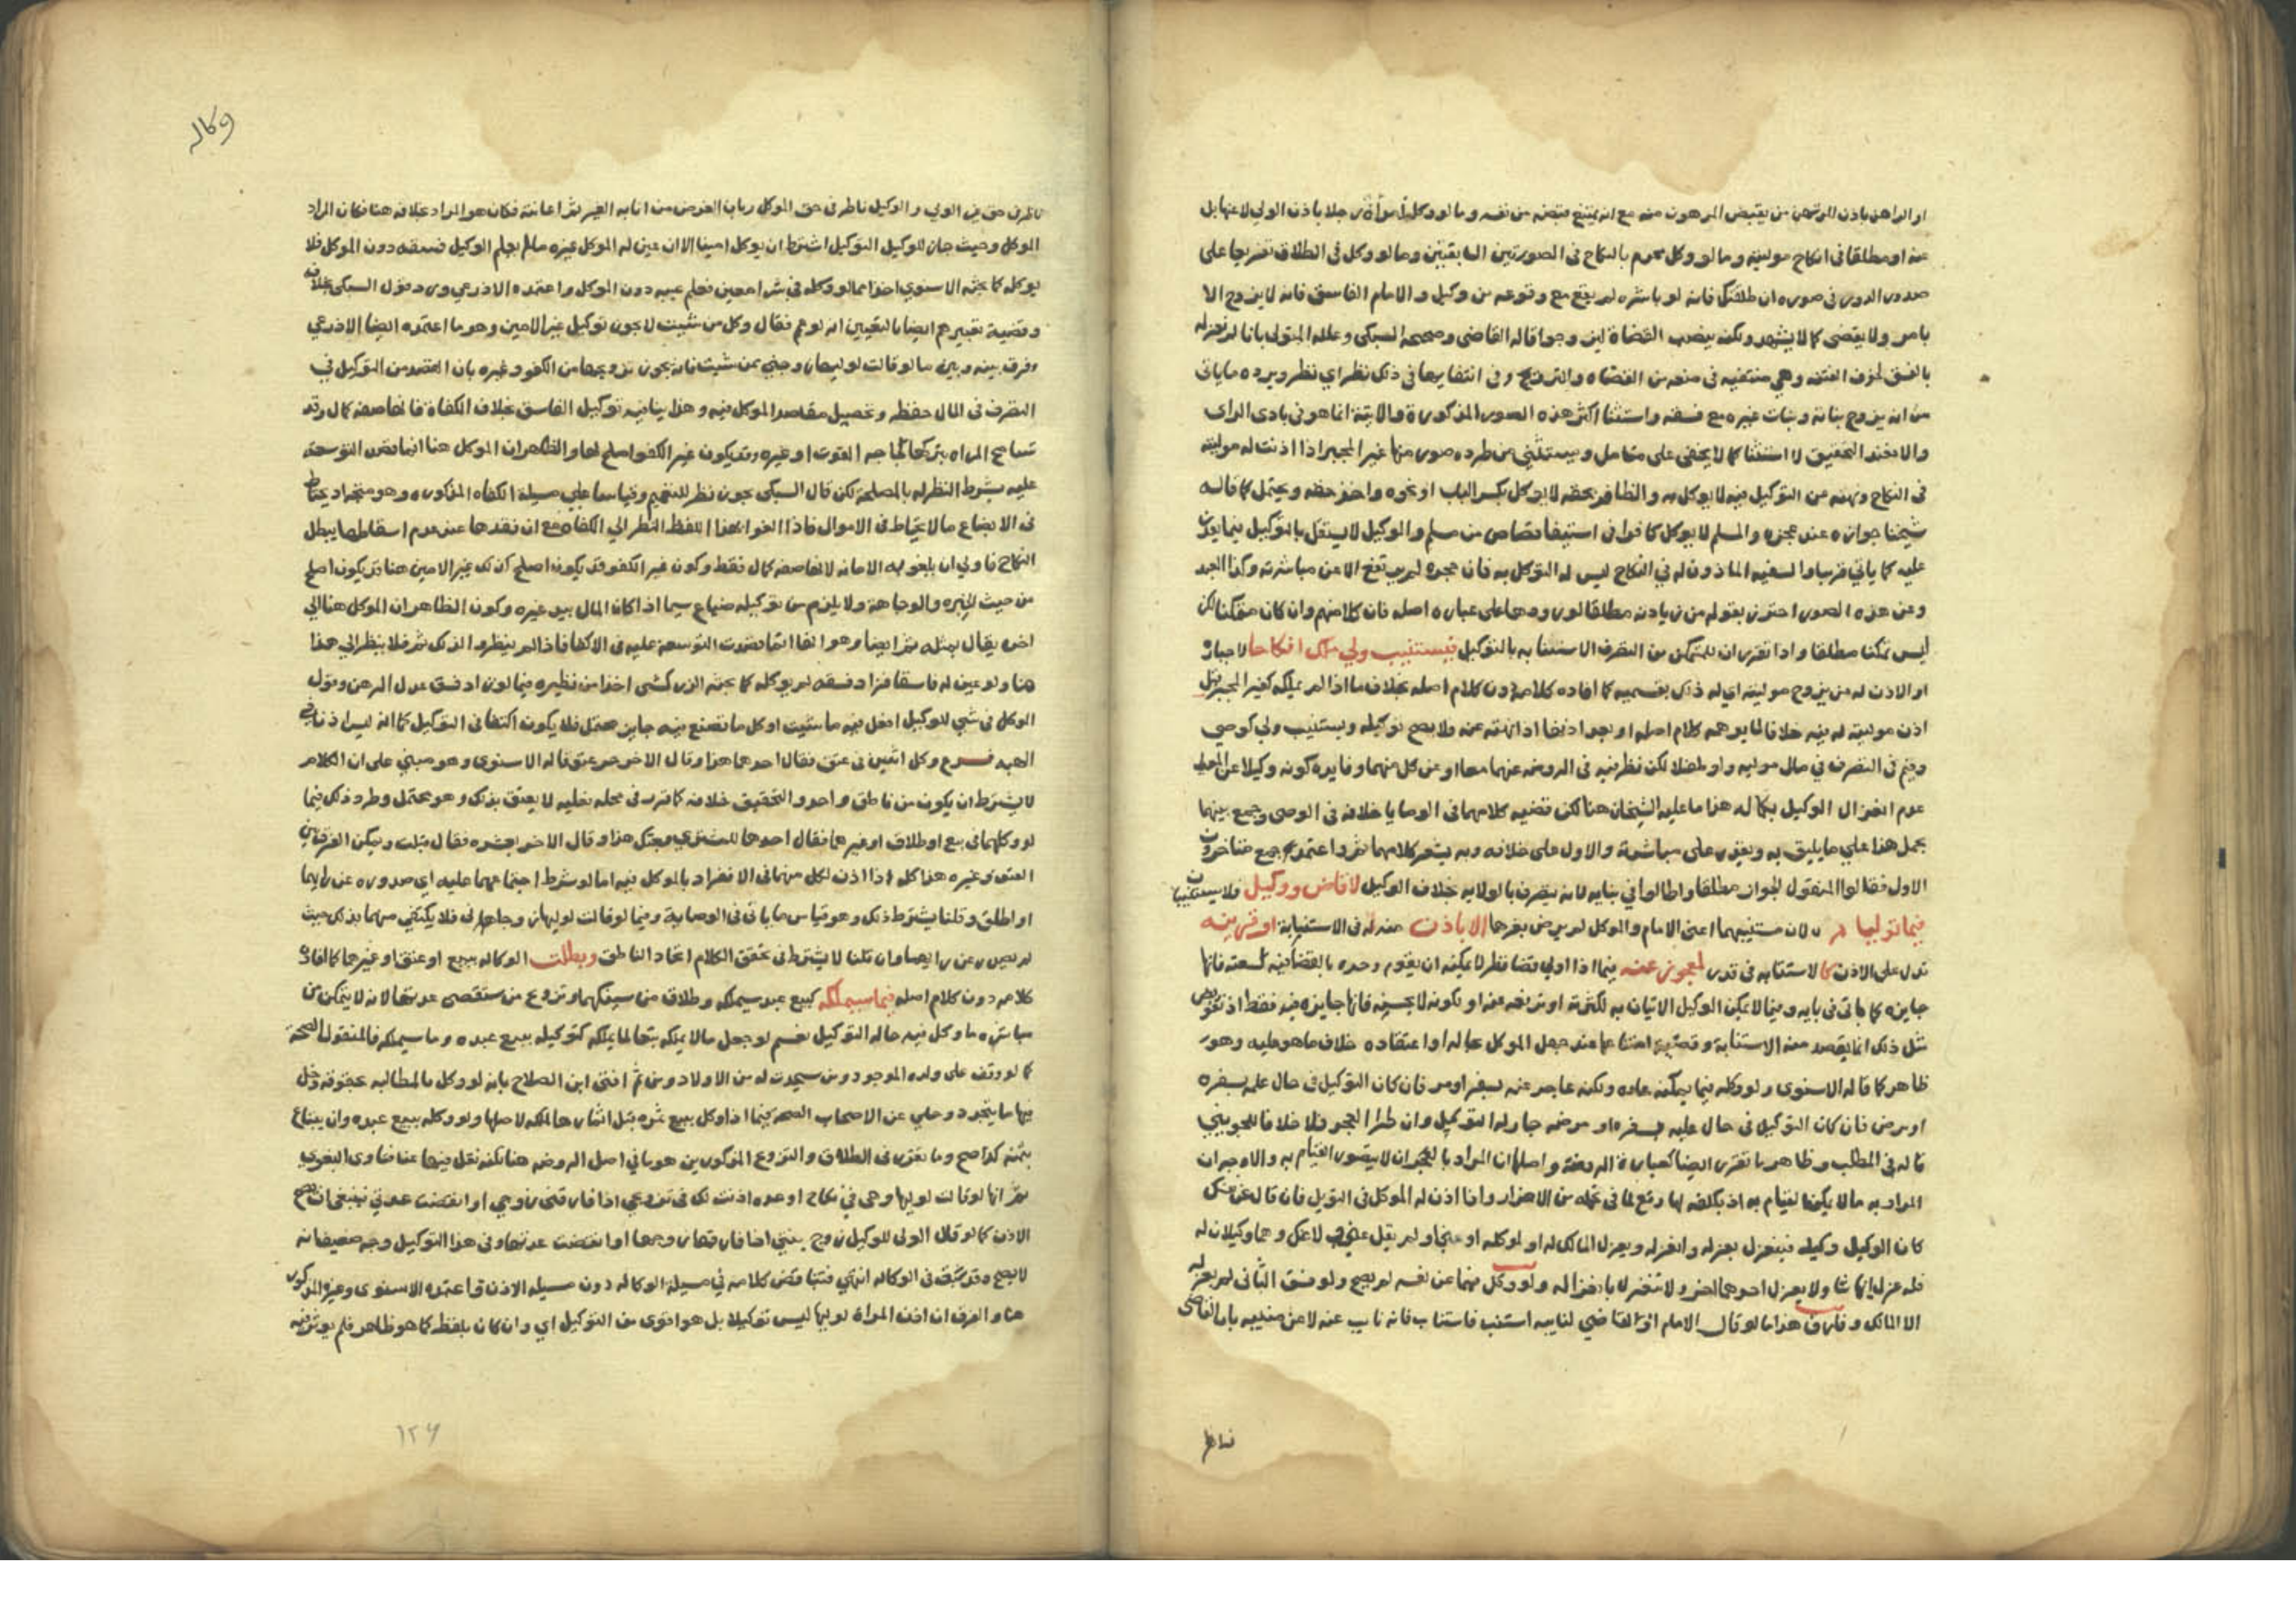 او الراهن باذن المرتهن من يقبض المرهون منه مع انه يمتنع قبضه من نفسه وما لو وكل امرأة رجلا باذن الولي لا عنها بل
عنه او مطلقا في انكاح موليته وما لو وكل محرم بالنكاح في الصورتين السابقتين وما لو وكل في الطلاق تفريعا على
صدور الدور في صوره ان طلقتك فانه لو باشره لم يقع مع وقوعه من وكيل والامام الفاسق فانه لا يزوج الا
بامر ولا يقضي كما لا يشهد ولكنه ينصب القضاة لهن وجوبا قاله القاضي وصححه السبكي وعلله المتولي بانا لم نعزله
بالفسق لخوف الفتنه وهي منتفيه في منعه من القضاء والتزويج وفي انتفايها في ذلك نظر اي نظر ويرده ما ياتي
من انه يزوج بناته وبنات غيره مع فسقه واستثنا اكثر هذه الصور المذكورة والاتية انما هو في بادي الراي
والا فعند التحقيق لا استثنا كما لا يخفى على متامل ويستثنى من طرده صور منها غير المجبر اذا اذنت له موليته
في النكاح ونهته عن التوكيل فيه لا يوكل به والظافر بحقه لا يوكل بكسر الباب او نحوه واخذ حقه ويحتمل كما قاله
شيخنا جوازه عند عجزه والمسلم لا يوكل كافرا في استيفا قصاص من مسلم والوكيل لا يستقل بالتوكيل فيما يقدر
عليه كما ياتي قريبا والسفيه الماذون له في النكاح ليس له التوكل به فان حجره لم يرتفع الا عن مباشرته وكذا العبد
وعن هذه الصور احترز بقوله من زيادته مطلقا لورودها على عباره اصله فان كلا منهم وان كان متمكنا لكن
ليس تمكنا مطلقا واذا تقرر ان للمتمكن من التصرف الاستنابه بالتوكيل فيستنيب ولي ملك انكاحا لاجبار
او الاذن له من يزوج موليته اي له ذلك بقسميه كما افاده كلامه دون كلام اصله بخلاف ما اذا لم يملكه كغير المجبر قبل
اذن موليته له فيه خلافا لما يوهمه كلام اصله او بعد اذنها اذا نهته عنه ولا يصح توكيله ويستنيب ولي كوصي
وقيم في التصرف في مال موليه ولو طفلا لكن نظر فيه في الروضه عنهما معا او عن كل منهما وفايدة كونه وكيلا عن الطفل
عدم انعزال الوكيل بكماله هذا ما عليه الشيخان هنا لكن قضيه كلامهما في الوصايا خلافه في الوصي وجمع بينهما
بحمل هذا على ما يليق به ويقدر على مباشرته والاول على خلافه وبه يشعر كلامهما ثم واعتمد جمع متاخرون
الاول فقالوا المنقول الجواز مطلقا واطالوا في بيانه لانه يتصرف بالولايه خلاف الوكيل لا قاض ووكيل فلا يستنيبان
فيما توليا لان مستنيبهما اعني الامام والموكل لم يرض بغيرهما الا باذن منه له في الاستنابة او قرينه
تدل على الاذن كالاستنابه في قدر لمعجوز عنه فيما اذا اولي قضا قطر لا يمكنه ان يقوم وحده بالقضا فيه لسعته فانها
جايزه كما ياتي في بابه وفيما لا يمكن الوكيل الاتيان به لكثرته او ترفعه عنه او لكونه لا يحسنه فانها جايزه فيه فقط اذ تفويض
مثل ذلك انما يقصد منه الاستنابة وقضيته امتناعها عند جهل الموكل بحاله او اعتقاده خلاف ما هو عليه وهو
ظاهر كما قاله الاسنوي ولو وكله فيما يمكنه عاده ولكنه عاجز عنه بسفر او مرض فان كان التوكيل في حال علمه بسفره
او مرض فان كان التوكيل في حال عليه بسفره او مرضه جاز له التوكيل وان طرا العجز فلا خلافا للجويني
قاله في المطلب وظاهر ما تقرر ايضا كعبارة الروضة واصلها ان المراد بالعجز ان لا يتصور القيام به والاوجه ان
المراد به ما لا يمكن القيام به اذ بكلفه لها وقع لما في تحمله من الاضرار واذا اذن له الموكل في التوكيل فان قال عن
كان الوكيل وكيله فينعزل بعزله وانعزاله وبعزل المالك له او لوكله او عني او لم يقل عني لا عنك وهما وكيلان له
فله عزل ايهما شا ولا يعزل احدهما الاخر ولا ينعزل بانعزاله ولو وكل منهما عن نفسه لم يصح ولو فسق الثاني لم يعزله
الا المالك وفارق هذا ما لو قال الامام او القاضي لنايبه استنب فاستناب فانه نايب عنه لا عن منيبه بان القاضي
ناظر
وكاله
ناظر في حق غير المولي والوكيل ناظر في حق الموكل وبان الغرض من انابه الغير ثم اعانته فكان هو المراد بخلافه هنا فكان المراد
الموكل وحيث جاز للوكيل التوكيل اشترط ان يوكل امينا الا ان عين له الموكل غيره ما لم يعلم الوكيل فسقه دون الموكل فلا
يوكله كما بحثه الاسنوي اخذا مما لو وكله في شرا معين فعلم عيبه دون الموكل واعتمده الاذرعي ورد بقول السبكي بخلاف
وقضية تعبيرهم ايضا بالتعيين انه لو عم فقال وكل من شيت لا يجوز توكيل غير الامين وهو ما اعتمده ايضا الاذرعي
وفرق بينه وبين ما لو قالت لوليها زوجني ممن شيت فانه يجوز تزويجها من الكفو وغيره بان المقصد من التوكيل في
التصرف في المال حفظه وتحصيل مقاصد الموكل فيه وهذا ينافيه توكيل الفاسق بخلاف الكفاة فانها صفة كمال وقد
تسامح المراه بتركها لحاجه القوت او غيره وقد يكون غير الكفو اصلح لها والظاهر ان الموكل هنا انما قصد التوسعة
عليه بشرط النظر له بالمصلحة لكن قال السبكي يجوز نظر للتعميم وقياسا على مسيلة الكفاه المذكوره وهو متجه اذ يحتاط
في الابضاع ما لا يحتاط في الاموال فاذا الغوا بهذا اللفظ النظر الى الكفاه مع ان فقدها عند عدم اسقاطها يبطل
النكاح فاولي ان يلغو به الامانه لانها صفه كمال فقط وكون غير الكفو قد يكون اصلح كذلك غير الامين هنا قد يكون اصلح
من حيث الخبره والوجاهة ولا يلزم من توكيله ضياع سيما اذا كان المال بيد غيره وكون الظاهر ان الموكل هنا الى
اخره يقال بمثله ثم ايضا وهو انها انما قصدت التوسعة عليه في الاكفا فاذا لم ينظروا لذلك ثم فلا ينظر الى هذا
هنا ولو عين له فاسقا فزاد فسقه لم يوكله كما بحثه الزركشي اخذا من نظيره فيما لو زاد فسق عدل الرهن وقول
الوكل في شي للوكيل افعل فيه ما شيت او كل ما تصنع فيه جايز محتمل فلا يكون اكتفا في التوكيل كما انه ليس اذنا في
الهبه فـرع وكل اثنين في عتق فقال احدهما هذا وقال الاخر حر عتق قاله الاسنوي وهو مبني على ان الكلام
لا يشترط ان يكون من ناطق واحد والتحقيق خلافه كما قرر في محله فعليه لا يعتق بذلك وهو محتمل وطرد ذلك فيما
لو وكلهما في بيع او طلاق او غيرهما فقال احدهما للمشتري بعتك هذا وقال الاخر بعشره فقال قبلت ويمكن الفرق بين
العتق وغيره هذا كله اذا اذن لكل منهما في الانفراد بالموكل فيه اما لو شرط اجتماعهما عليه اي صدوره عن رايهما
او اطلق وقلنا يشترط ذلك وهو قياس ما ياتي في الوصاية وفيما لو قالت لوليها زوجاني فلا يكتفي منهما بذلك حيث
لم يصدر عن رايهما وان قلنا لا يشترط في تحقق الكلام اتحاد الناطق وبطلت الوكاله ببيع او عتق او غيرهما كما افاده
كلامه دون كلام اصله فيما سيملكه كبيع عبد سيملكه وطلاق من سينكحها وتزوج من ستنقضي عدتها لانه لا يتمكن من
مباشره ما وكل فيه حاله التوكيل نعم لو جعل ما لا يملكه تبعا لما يملكه كتوكيله ببيع عبده وما سيملكه فالمنقول الصحة
كما لو وقف على ولده الموجود ومن سيحدث له من الاولاد ومن ثم افتى ابن الصلاح بانه لو وكل بالمطالبه بحقوقه دخل
فيها ما يتجدد وحكي عن الاصحاب الصحه فيما اذا وكل ببيع ثمره قبل اثمارها لملكه لاصلها ولو وكله ببيع عبده وان يبتاع
بثمنه كذا صح وما تقرر في الطلاق والتزوج المذكورين هو ما في اصل الروضه هنا لكنه نقل فيها عن فتاوى البغوي
ثم انها لو قالت لوليها وهي في نكاح او عده اذنت لك في تزويجي اذا فارقني زوجي او انقضت عدتي فينبغي ان يصح
الاذن كما لو قال الولي للوكيل زوج بنتي اذا فارقها زوجها او انقضت عدتها وفي هذا التوكيل وجه ضعيف انه
لا يصح وقد سبق في الوكاله انتهى فتناقض كلامه في مسيلة الوكاله دون مسيله الاذن واعتمده الاسنوي وغيره المذكور
هنا والفرق ان اذن المراة لوليها ليس توكيلا بل هو اقوى من التوكيل اي وان كان بلفظه كما هو ظاهر فلم يوثر فيه
١٢٦